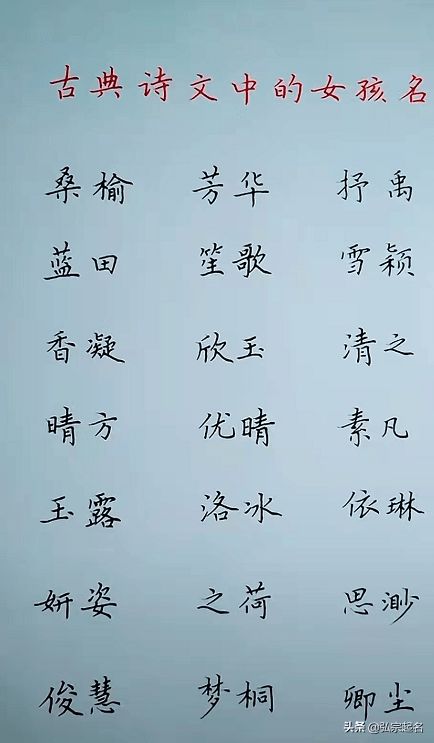 古典诗文中的女孩名
桑榆 芳华 抒禹
蓝田 笙歌 雪颖
香凝 欣玉 清之
晴方 优晴 素凡
玉露 洛冰 依琳
妍姿 之荷 思渺
俊慧 梦桐 卿尘
头条 @弘宗起名